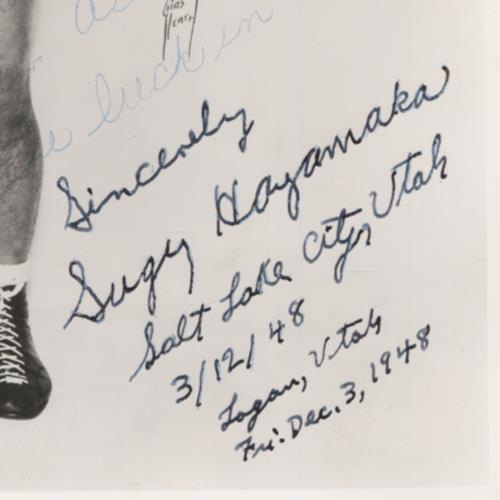 luck in
Sincerely
Sugi Hayamaka
Salt Lake City, Utah
3/12/48
Logan, Utah
Fri. Dec. 3, 1948